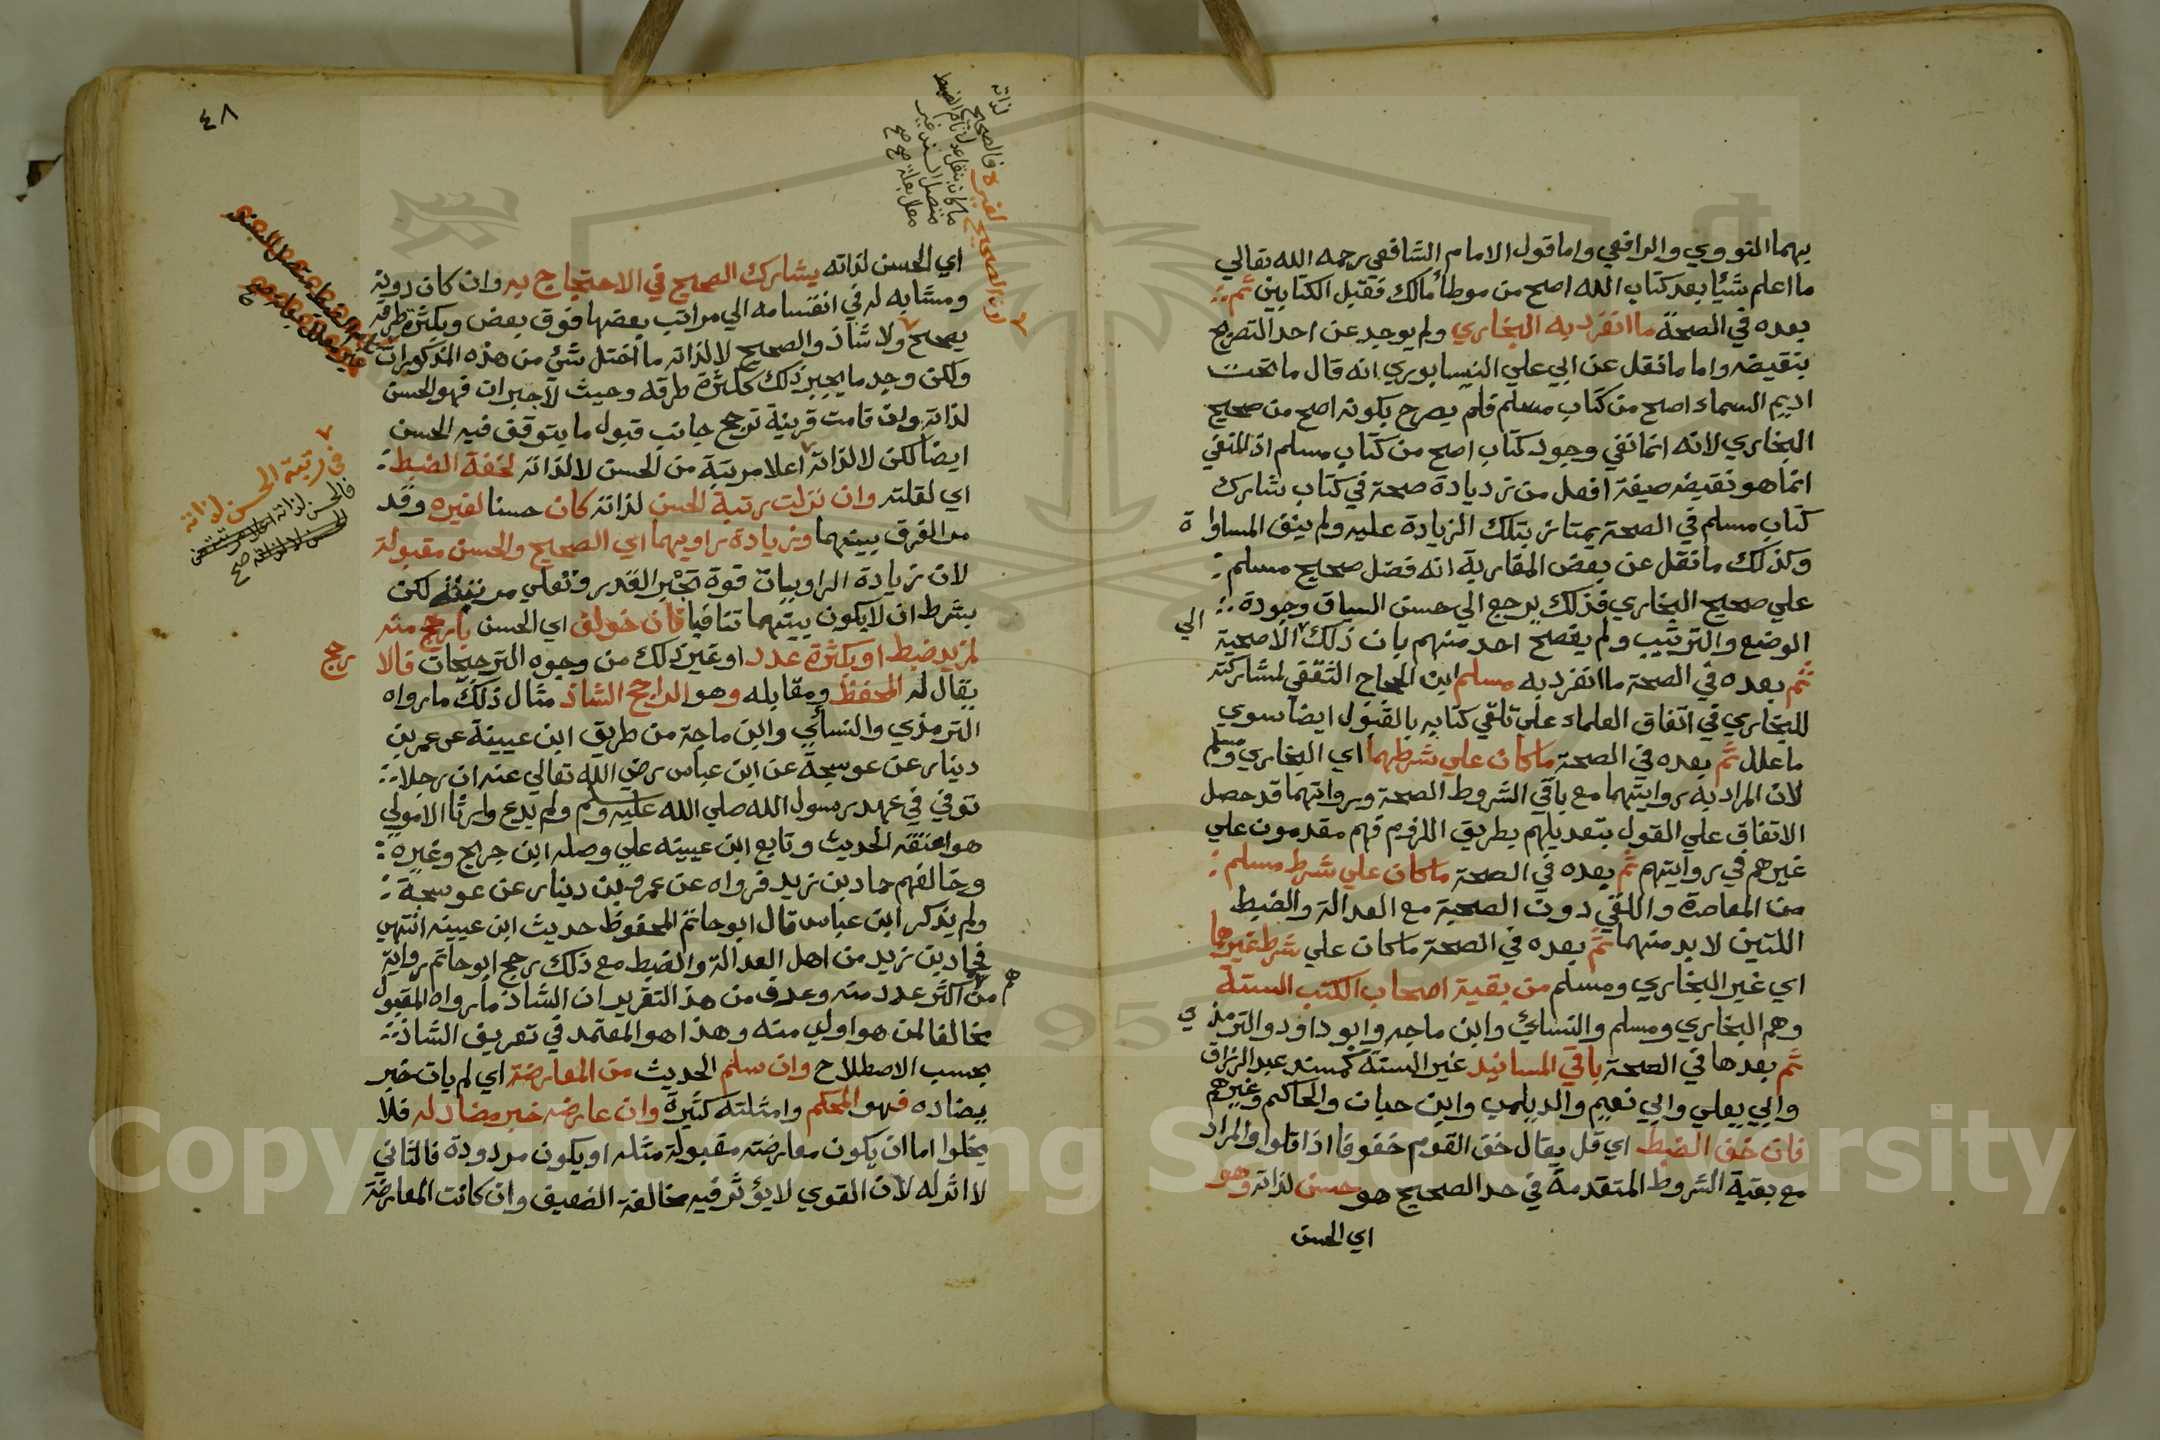 بهما النووي والرافعي واما قول الامام الشافعي رحمه الله تعالي
ما اعلم شيئا بعد كتاب الله اصح من موطأ مالك فقبل الكتابين ثم
بعده في الصحة ما انفرد به البخاري ولم يوجد عن احد التصريح
بنقيضه واما ما نقل عن ابي علي النيسابوري انه قال ما تحت
اديم السماء اصح من كتاب مسلم فلم يصرح بكونه اصح من صحيح
البخاري لانه انما نفي وجود كتاب اصح من كتاب مسلم اذ المنفي
انما هو نقيضه صيغة افعل من زديادة صحة في كتاب شارك
كتاب مسلم في الصحة يمتاز بتلك الزيادة عليه ولم ينف المساواة
وكذلك ما نقل عن بعض المغاربة انه فضل صحيح مسلم
علي صحيح البخاري فذلك يرجع الي حسن السياق وجودة
الوضع والترتيب ولم يفصح احد منهم بان ذلك الاصحية
الي
ثم بعده في الصحة ما انفرد به مسلم ابن الحجاج الثقفي لمشاركته
للبخاري في اتفاق العلماء علي تلقي كتابه بالقبول ايضا سوي
ما علل ثم بعده في الصحة ما كان علي شرطهما اي البخاري ومسلم
لان المراد به روايتهما مع باقي الشروط الصحة ورواتهما قد حصل
الاتفاق علي القول بتعديلهم بطريق اللزوم فهم مقدمون علي
غيرهم في روايتهم ثم بعده في الصحة ما كان علي شرط مسلم
من المعاصرة واللقي دون الصحبة مع العدالة والضبط
اللتين لا بد منهما ثم بعده في الصحة ما كان علي شرط غيرهما
اي غير البخاري ومسلم من بقية اصحاب الكتب الستة
وهم البخاري ومسلم والنسائي وابن ماجه وابو داود والترمذي
ثم بعدها في الصحة باقي المسانيد غير الستة كمسند عبد الرزاق
وابي يعلي وابي نعيم والديلمي وابن حبان والحاكم وغيرهم
فان خف الضبط اي قل يقال خف القوم خفوفا اذا قلوا والمراد
مع بقية الشروط المتقدمة في حد الصحيح هو حسن لذاته وهو
اي الحسن
٤٨
اي الحسن لذاته يشارك الصحيح في الاحتجاج به وان كان دونه
ومشابه له في انقسامه الي مراتب بعضها فوق بعض وبكثرة طرقه
يصحح ولا شاذ والصحيح لا لذاته ما اختل شئ من هذه المذكورات
ولكن وجد ما يجبر ذلك ككثرة طرقه وحيث لا جبران فهو الحسن
لذاته وان قامت قرينة ترجح جانب قبول ما يتوقف فيه الحسن
ايضا لكن لا لذاته اعلا مرتبة من الحسن لا لذاته لخفة الضبط
اي لقلته وان نزلت رتبة الحسن لذاته كان حسنا لغيره وقد
مر الفرق بينهما وزيادة راويهما اي الصحيح والحسن مقبولة
لان زيادة الراوي بيان قوة تجبر القدر وتعلي مرتبته لكن
بشرط ان لا يكون بينهما تنافيا فان خولف اي الحسن بارجح منه
لمزيد ضبط او بكثرة عدد او غير ذلك من وجوه الترجيحات فالا
رجح
يقال له المحفظ ومقابله وهو الراجح الشاذ مثال ذلك ما رواه
الترمذي والنسائي وابن ماجة من طريق ابن عيينة عن عمر بن
دينار عن عوسجة عن ابن عباس رضي الله تعالي عنه ان رجلا
توفي في عهد رسول الله صلي الله عليه وسلم ولم يدع وارثا الا مولي
هو اعتقه الحديث وتابع ابن عيينه علي وصله ابن جريج وغيره
وخالفهم حماد بن زيد فرواه عن عمرو بن دينار عن عوسجة
ولم يذكر ابن عباس قال ابو حاتم المحفوظ حديث ابن عيينه انتهي
فحماد بن زيد من اهل العدالة والضبط مع ذلك رجح ابو حاتم رواية
من هم اكثر عدد منه وعرف من هذ التقرير ان الشاذ ما رواه المقبول
مخالفا لمن هو اولي منه وهذا هو المعتمد في تعريف الشاذ
بحسب الاصطلاح وان سلم الحديث من المعارضة اي لم يات خبر
يضاده فهو المحكم وامثلته كثيرة وان عارضه خبر مضاد له فلا
يخلوا اما ان يكون معارضته مقبولة مثله او يكون مردودة فالثاني
لا اثر له لان القوي لا يؤثر فيه مخالفة الضعيف وان كانت المعارضة
لذاته
لغيره فالصحيح
ما كان بنقل عدل تام الضبط
متصل السند غير
معلل بعلة صح
في رتبة الحسن لذاته
فالحسن لذاته اعلا مرتبة من
الحسن لا لذاته صح
Copyright © King Saud University
1957